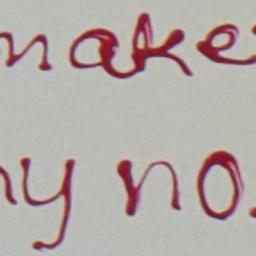 make
ny no